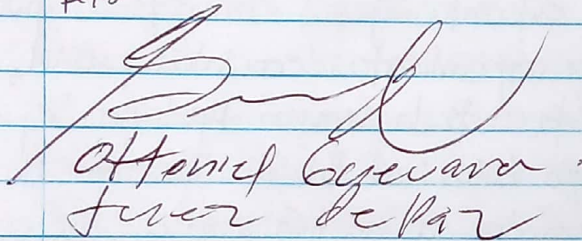 Ottoniel Guevara
Juez de Paz